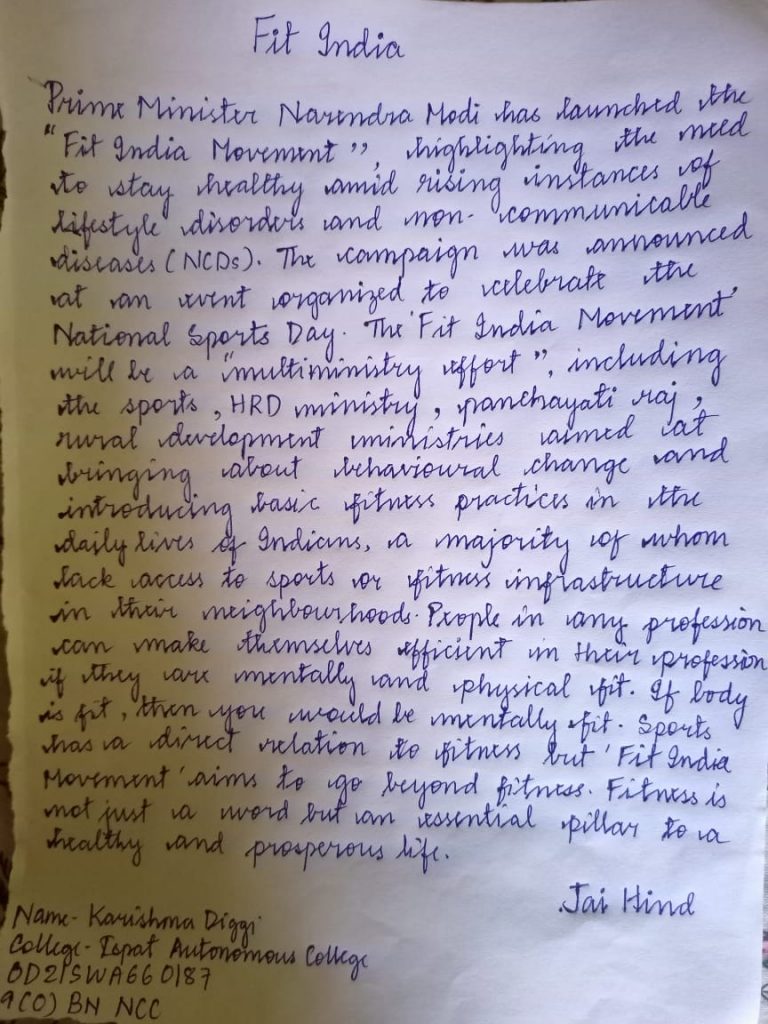 Fit India
Prime Minister Narendra Modi has launched the
"Fit India Movement", highlighting the need
to stay healthy amid rising instances of
lifestyle disorders and non-communicable
diseases (NCDs). The campaign was announced
at an event organized to celebrate the
National Sports Day. The 'Fit India Movement'
will be a "multiministry effort", including
the sports, HRD ministry, panchayati raj,
rural development ministries aimed at
bringing about behavioural change and
introducing basic fitness practices in the
daily lives of Indians, a majority of whom
lack access to sports or fitness infrastructure
in their neighbourhoods. People in any profession
can make themselves efficient in their profession
if they are mentally and physical fit. If body
is fit, then you would be mentally fit. Sports
has a direct relation to fitness but 'Fit India
Movement' aims to go beyond fitness. Fitness is
not just a word but an essential pillar to a
healthy and prosperous life.
Jai Hind
Name- Karishma Diggi
College- Ispat Autonomous College
OD21SWA660187
9(O) BN NCC